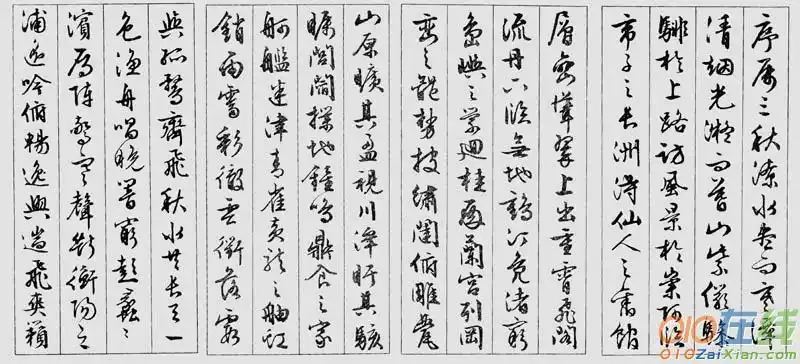 序屬三秋潦水盡而寒潭
清烟光凝而暮山紫儼驂
騑於上路訪風景於崇阿臨
帝子之長洲得仙人之舊館
層巒聳翠上出重霄飛閣
流丹下臨無地鶴汀鳧渚窮
島嶼之縈迴桂殿蘭宫列岡
巒之體勢披繡闥俯雕甍
山原曠其盈視川澤盱其駭
矚閭閻撲地鐘鳴鼎食之家
舸艦迷津青雀黄龍之舳虹
銷雨霽彩徹雲衢落霞
與孤鶩齊飛秋水共長天一
色漁舟唱晚響窮彭蠡之
濱雁陣驚寒聲斷衡陽之
浦遥吟俯暢逸興遄飛爽籟
010在线
010ZaiXian.com